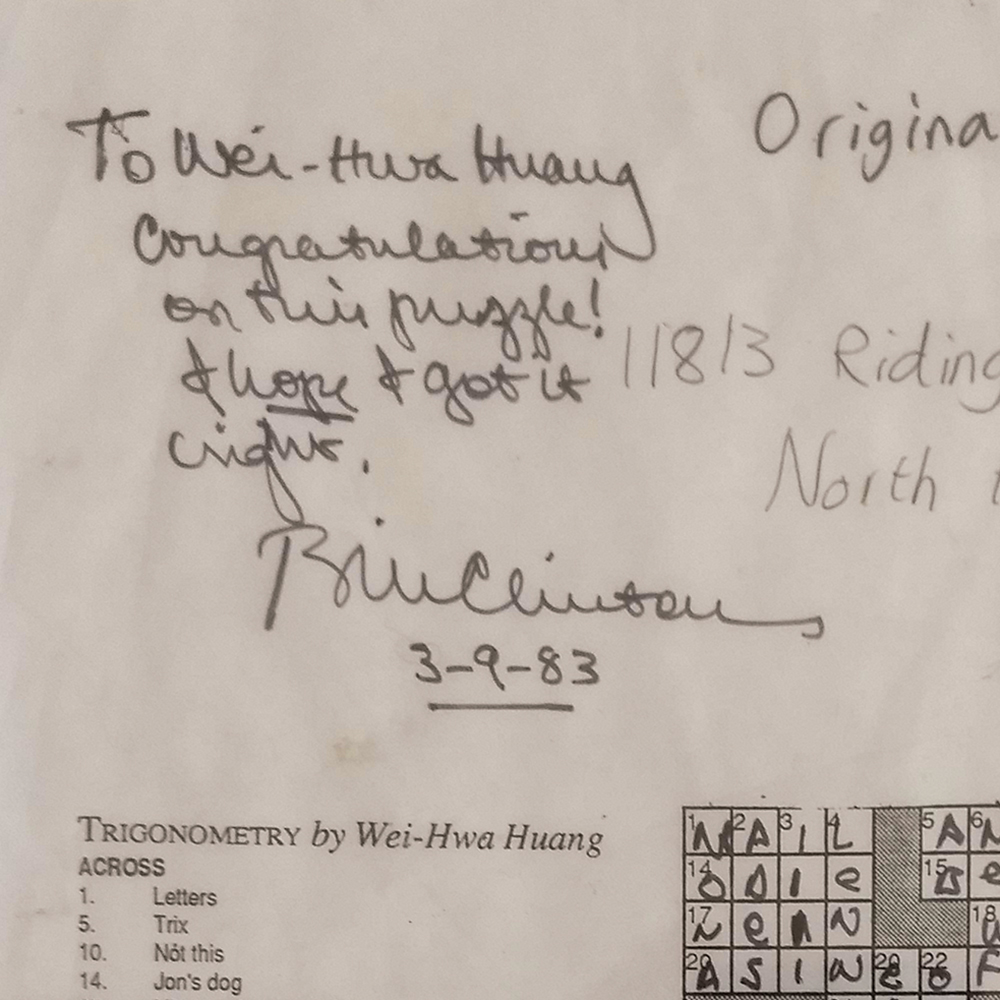 To Wei-Hwa Huang
Origina
Congratulations
on this puzzle!
I hope I got it
11813 Riding
right.
North
Bill Clinton
3-9-83
TRIGONOMETRY by Wei-Hwa Huang
ACROSS
1. Letters
5. Trix
10. Not this
14. Jon's dog
1 M 2 A 3 I 4 L 5 A 6
14 O D I E 15
17 Z E N 18
20 A S I N 22